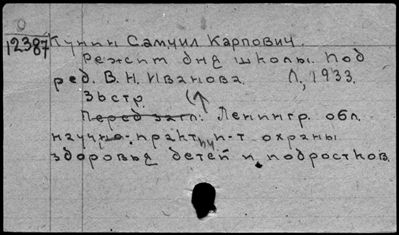 12387 Кунин Самуил Карпович.
Режим дня школы. Под
ред. В. Н. Иванова. Л, 1933.
36стр.
Перед загл: Ленингр. обл.
научно-практ. ин-т охраны
здоровья детей и подростков.